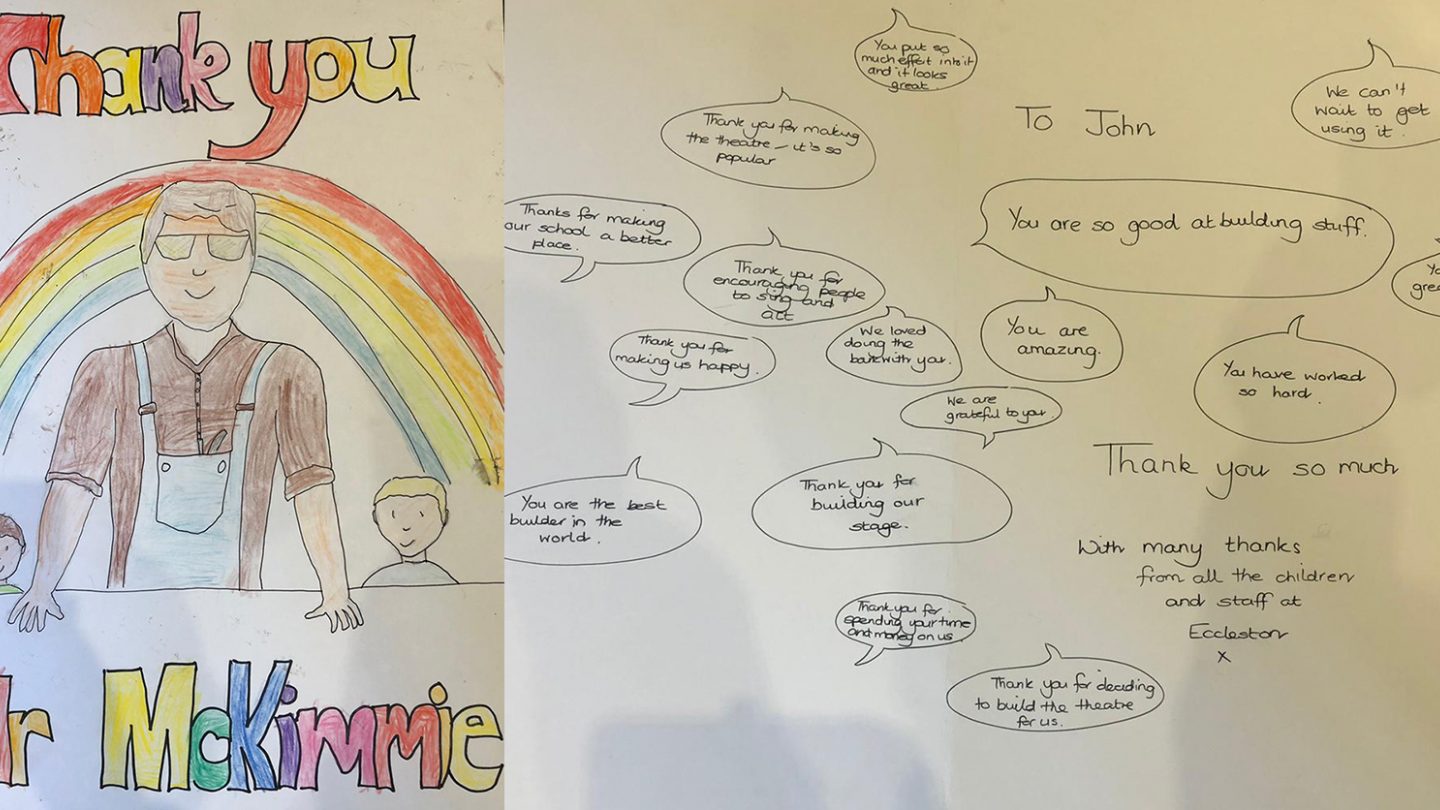 Thank you
Mr McKimmie
You put so
much effort into it
and it looks
great.
To John
We can't
wait to get
using it.
Thank you for making
the theatre – it's so
popular
You are so good at building stuff.
Thanks for making
our school a better
place.
Thank you for
encouraging people
to sing and
act
We loved
doing the
bank with you.
You are
amazing.
Thank you for
making us happy.
You have worked
so hard.
We are
grateful to you.
Thank you so much
You are the best
builder in the
world.
Thank you for
building our
stage.
With many thanks
from all the children
and staff at
Eccleston
x
Thank you for
spending your time
and money on us
Thank you for deciding
to build the theatre
for us.